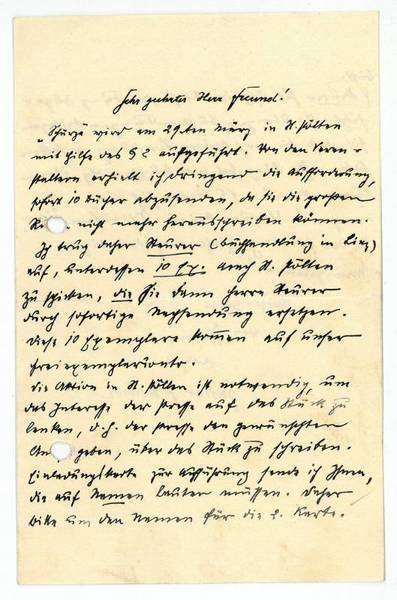 Sehr geehrter Herr Freund!
"Schürze wird am 29ten März in St. Pölten
mit Hilfe des § 2 aufgeführt. Von den Veran-
staltern erhielt ich dringend die Aufforderung,
sofort 10 Bücher abzusenden, da sie die großen
nicht mehr herausschreiben können.
Ich trug daher Steurer (Buchhandlung in Linz)
auf, unterdessen 10 Ex. nach St. Pölten
zu schicken, die Sie dann Herrn Steurer
durch sofortige Nachsendung ersetzen.
Diese 10 Exemplare kommen auf unser
Freiexemplarkonto.
Die Aktion in St. Pölten ist notwendig, um
das Interesse der Presse auf das Stück zu
lenken, d.h. der Presse den gewünschten
geben, über das Stück zu schreiben.
Einladungskarte zur Aufführung sende ich Ihnen,
die auf Namen lauten müssen. Daher
bitte um den Namen für die 2. Karte.